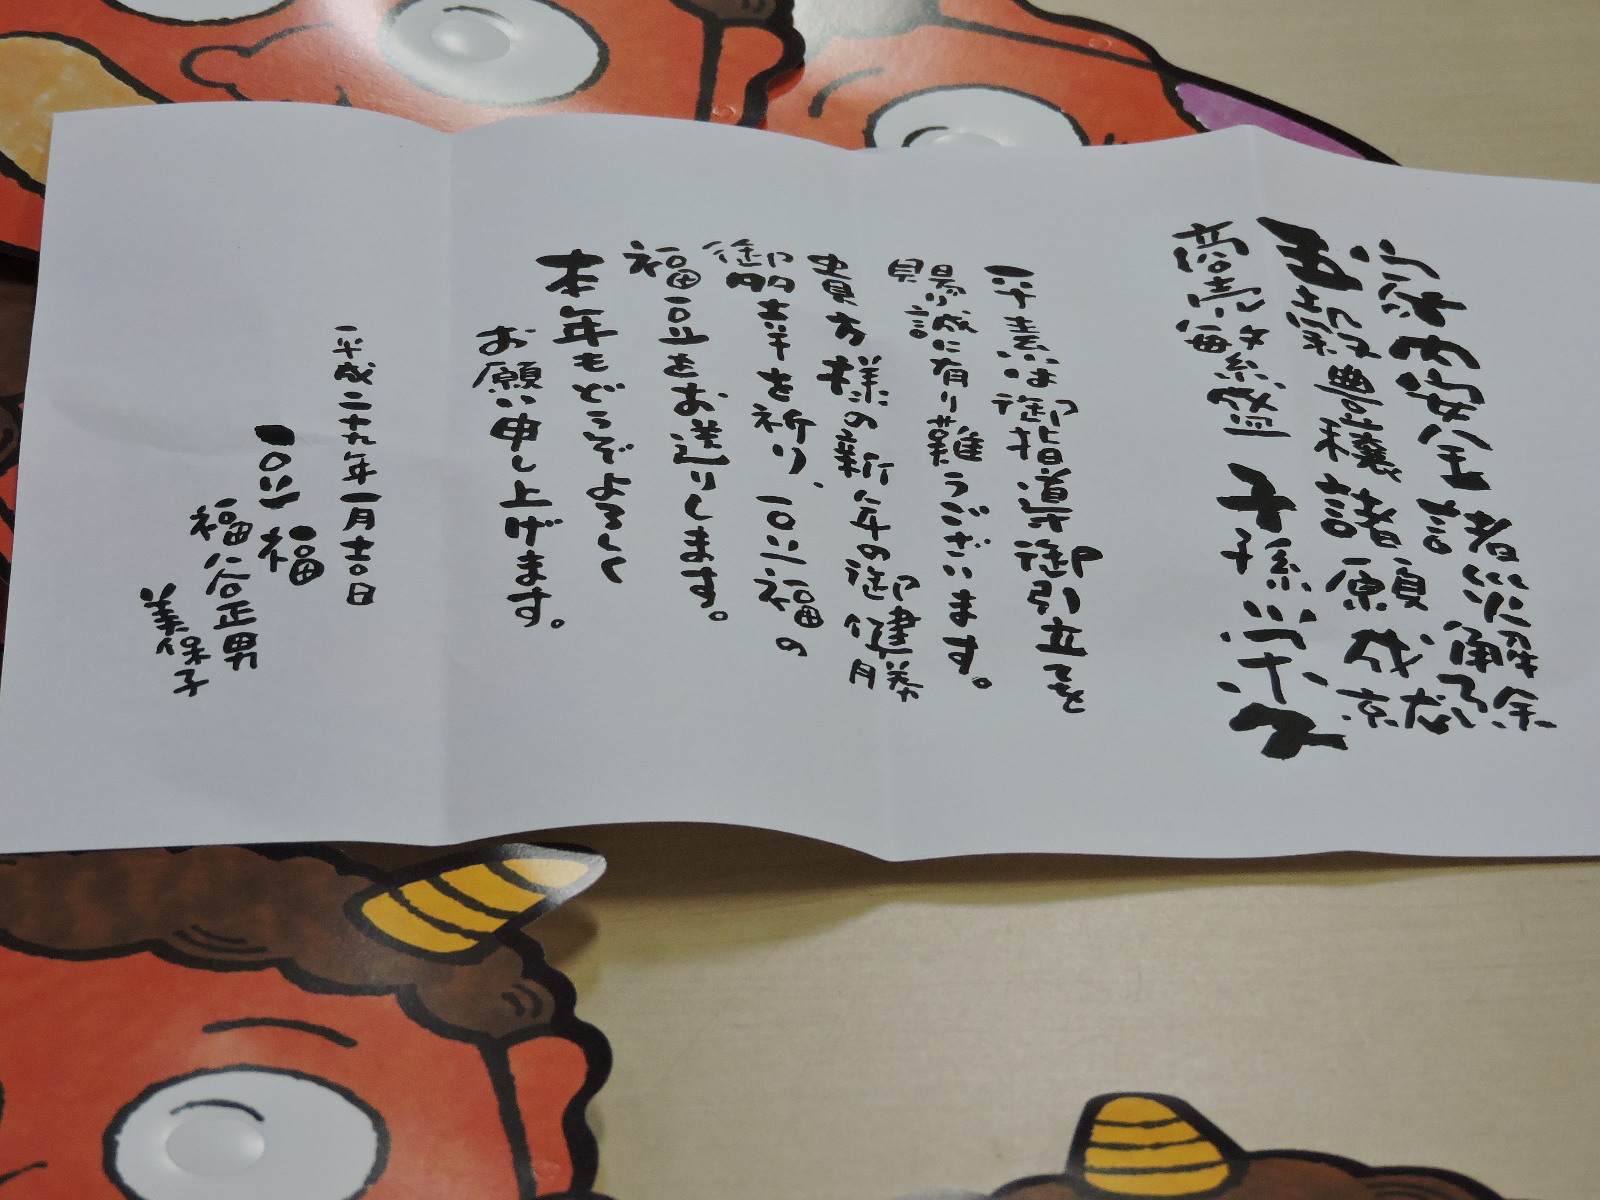 家内安全 諸災解除
五穀豊穣 諸願成就
商売繁盛 子孫栄
平素は御指導御引立てを
賜り誠に有り難うございます。
貴方様の新年の御健勝
御多幸を祈り、一〇八福の
福豆をお送りします。
本年もどうぞよろしく
お願い申し上げます。
平成二十九年一月吉日
一〇八福
福谷正男
美保子